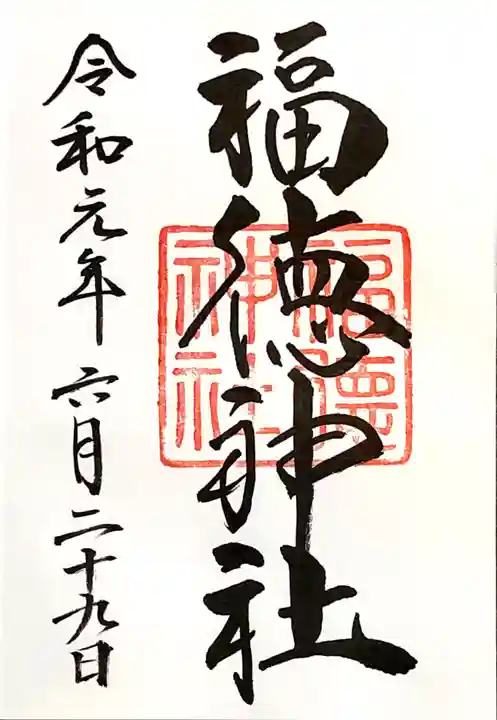 福徳神社
福徳
神社
令和元年六月二十九日